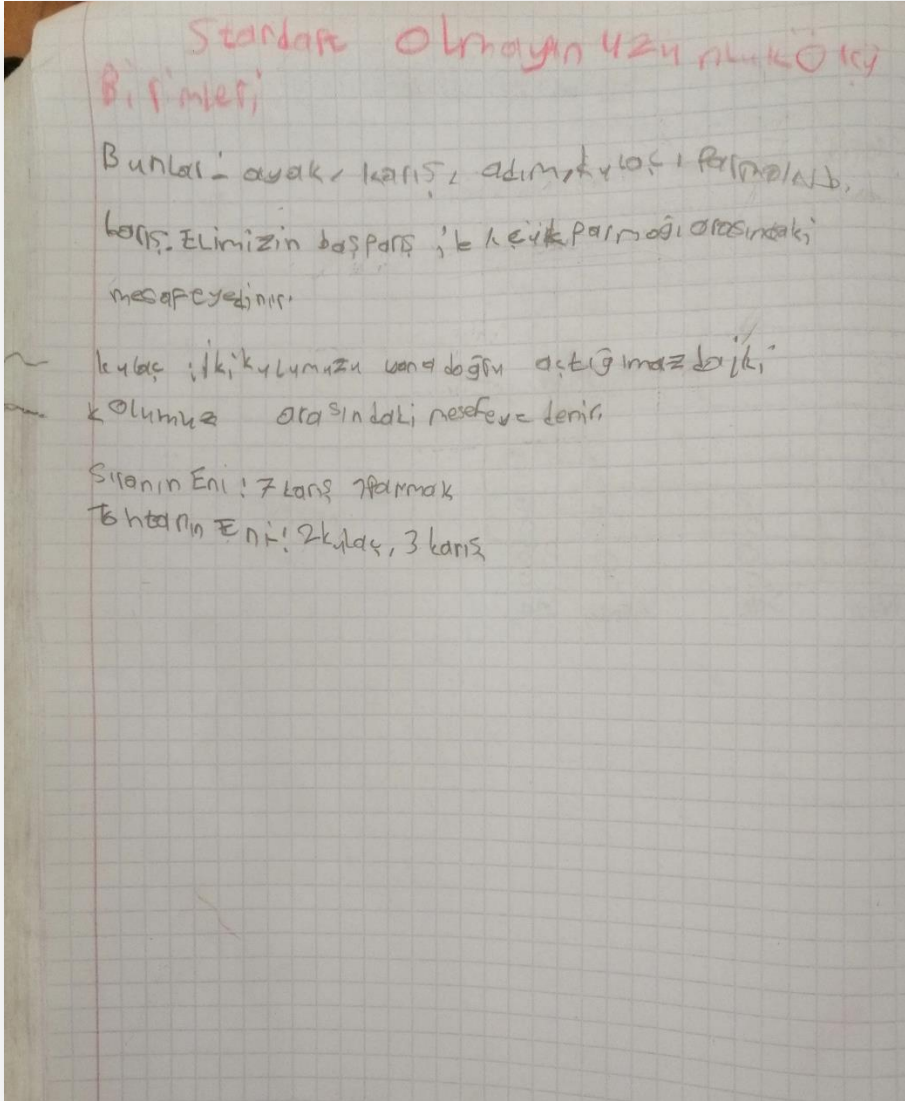 Standart Olmayan uzunluk Ölçü
Birimleri
Bunlar: ayak, karış, adım, kulaç, Parmak vb.
karış: Elimizin başparş ile küçük parmağı arasındaki
mesafeye dinir.
kulaç : İki kulumuzu yana doğru açtığımazda iki
kolumuz orasındaki mesefeye denir.
Sıranın Eni: 7 karış 7 parmak
Tahtanın Eni: 2 kulaç, 3 karış